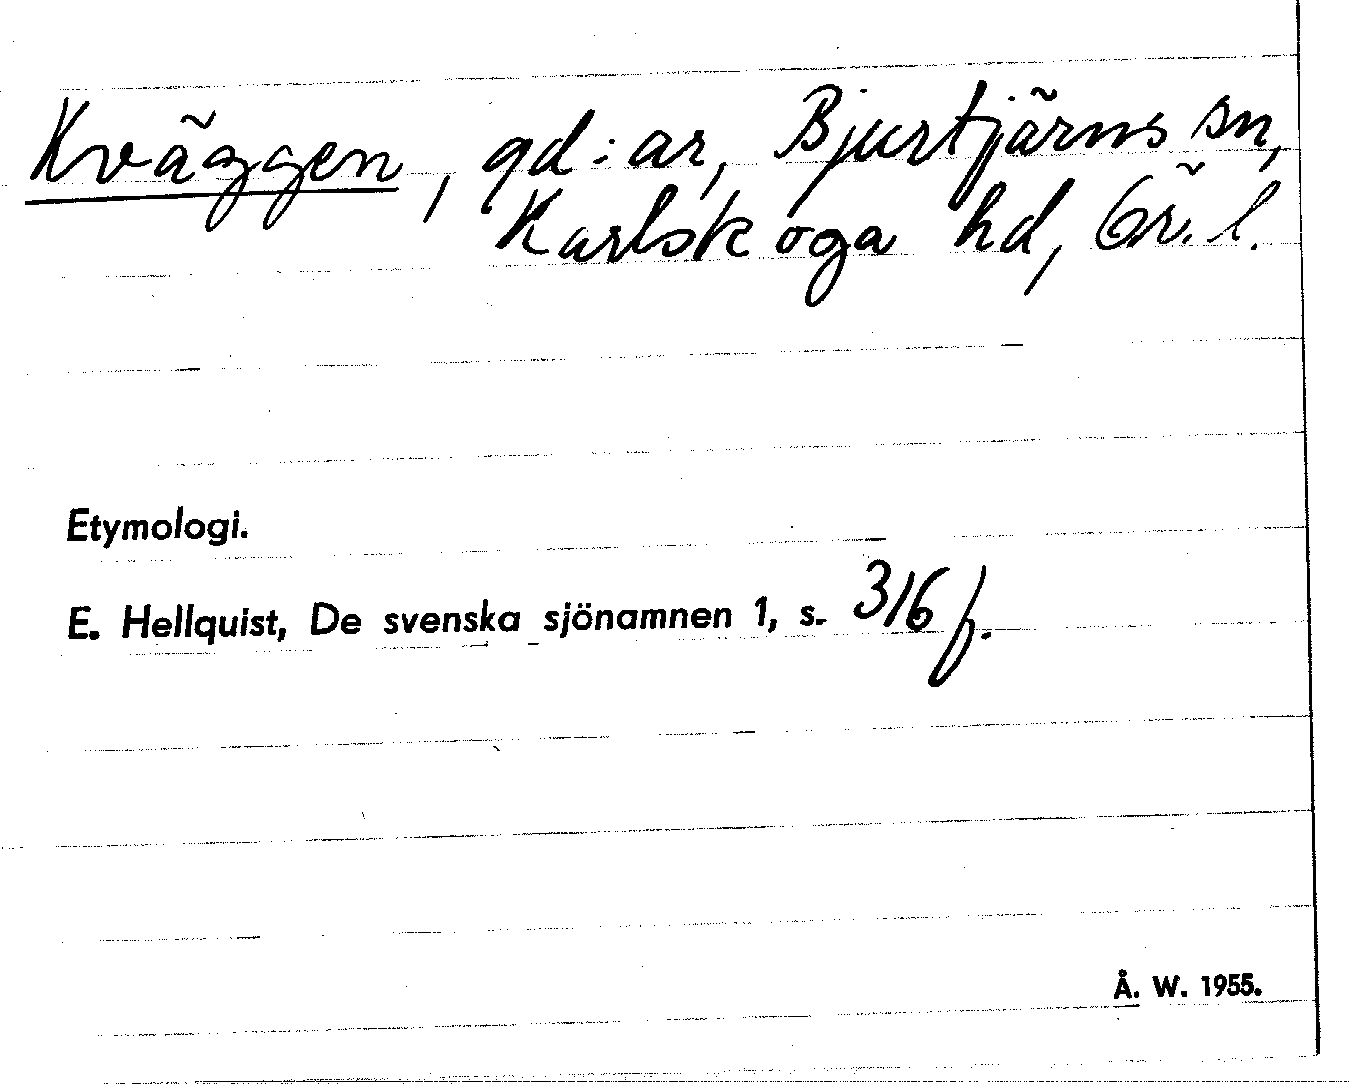 Kväggen, gd:ar, Bjurtjärns sn,
Karlskoga hd, Ör. l.
Etymologi.
E. Hellquist, De svenska sjönamnen 1, s. 316 f.
Å. W. 1955.